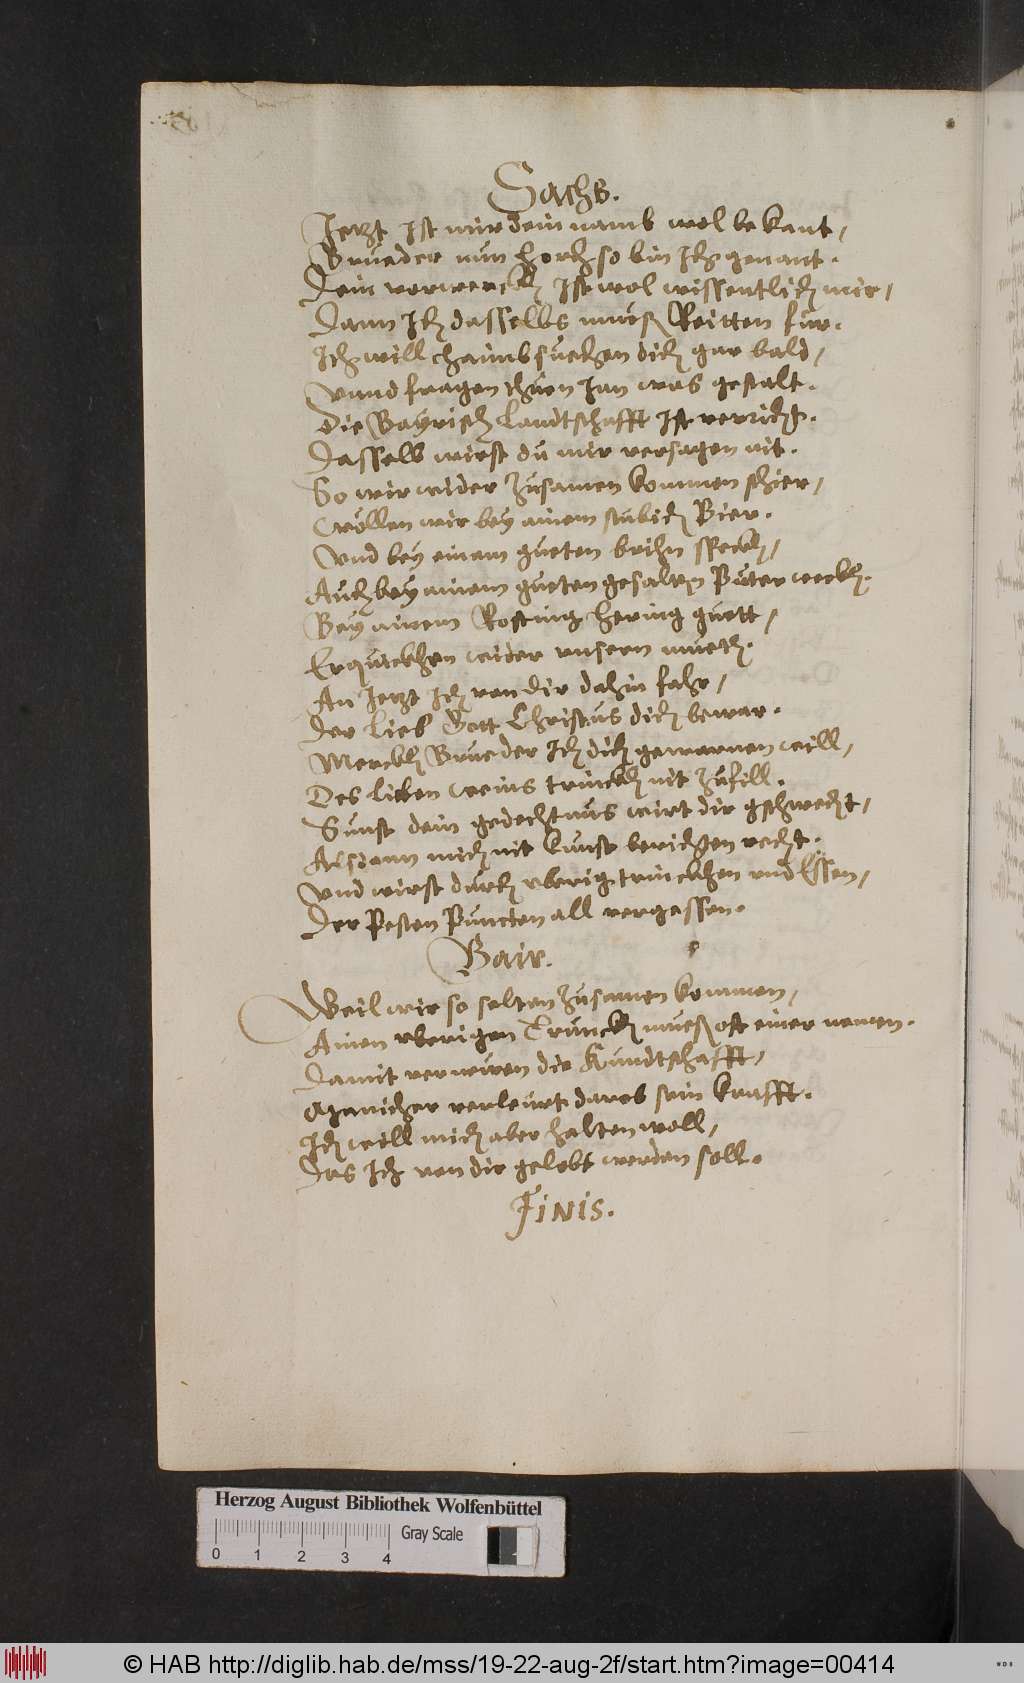 Sachs.
Jetzt Ist mir dein namb wol bekant,
Brueder nun Horch so bin Ich genant.
Dein vorwerckh Ist wol wissentlich mir,
Dann Ich dasselbs mueß Reitten für.
Ich will haimbsuechen dich gar bald,
vnnd fragen thuen Inn was gestalt.
Die Bayrisch Landtschafft Ist verricht.
Dasselb wirst du mir versagen nit.
So wir wider Zusamen kommen schier,
Wöllen wir bey ainem stubich Bier.
Vnd bey einem gueten brihn speckh,
Auch bey ainem gueten gesaltzn Puter weckh.
Bey ainem Rosting Hering guett,
Erquickhen wider vnsern mueth.
An Jetzt Ich von dir dahin fahr,
Der Lieb Gott Christus dich bewar.
Merckh Brueder Ich dich gewarnen will,
Des lieben weins trinckh nit Zufill.
Sunst dein gedechtnus wirt dir gschwecht,
Alsdann mich nit kunst berichten recht.
Vnd wirst durch vberig trinckhen vnd Essen,
Der Pesten Puncten all vergessen.
Bair.
Weil wir so selten Zusamen kommen,
Ainen vberigen Trunckh mueß oft einer nemen.
Damit vernewen die Kundtschafft,
Manicher verleurt darob sein krafft.
Ich will mich aber halten woll,
Das Ich von dir gelobt werden soll.
FINIS.
Herzog August Bibliothek Wolfenbüttel
0 1 2 3 4 Gray Scale
© HAB http://diglib.hab.de/mss/19-22-aug-2f/start.htm?image=00414